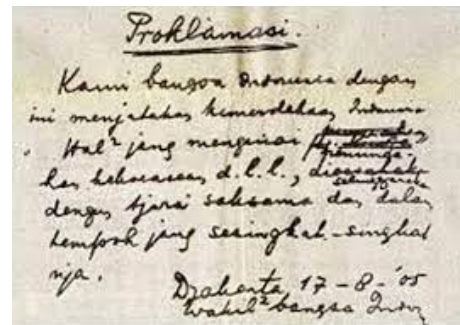 Proklamasi.
Kami bangsa Indonesia dengan
ini menjatakan kemerdekaan Indonesia
Hal² jang mengenai
d.l.l.,
dengan tjara saksama dan dalam
tempoh jang sesingkat-singkat
nja.
Djakarta, 17 - 8 - '05
Wakil² bangsa Indon